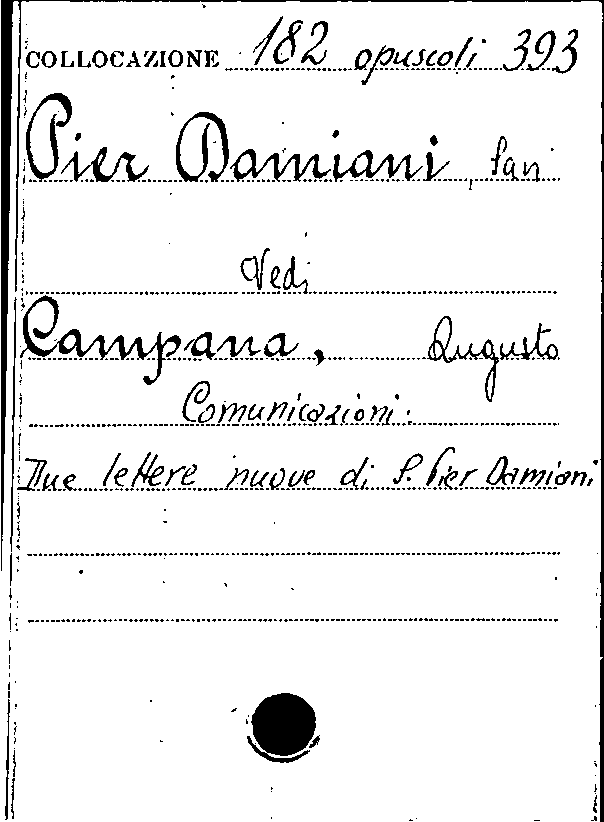 COLLOCAZIONE 182 opuscoli 393
Pier Damiani, San
Vedi
Campana, Augusto
Comunicazioni:
Due lettere nuove di S. Pier Damiani